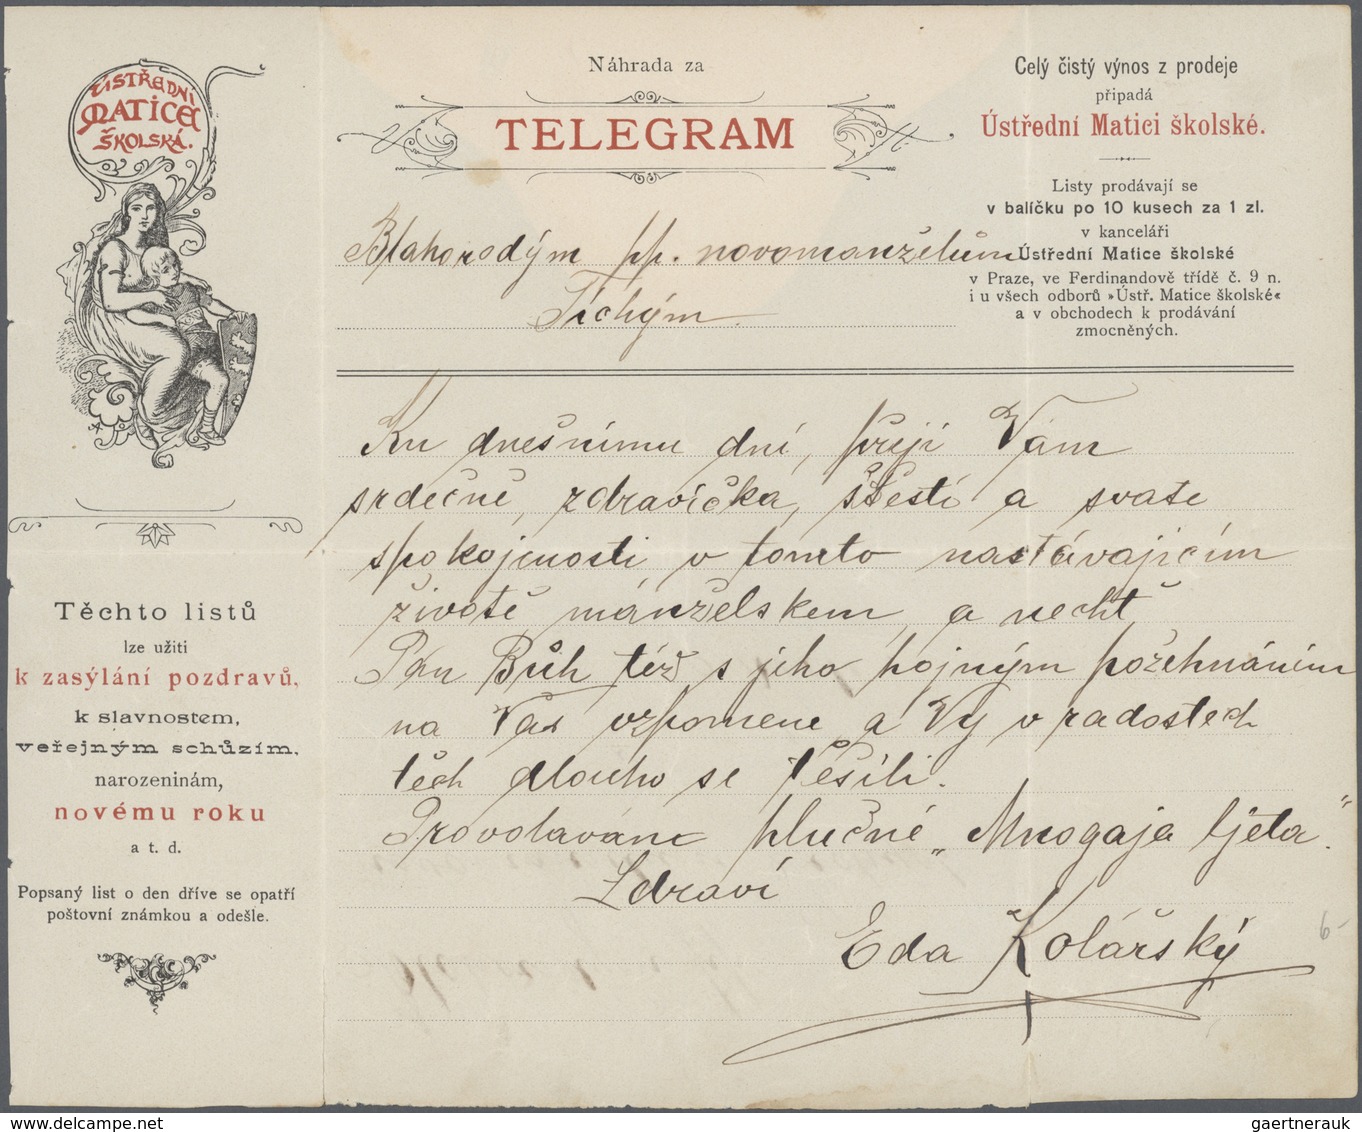 ÚSTŘEDNÍ
MATICE
ŠKOLSKÁ.
Těchto listů
lze užiti
k zasýlání pozdravů,
k slavnostem,
veřejným schůzím,
narozeninám,
novému roku
a t. d.
Popsaný list o den dříve se opatří
poštovní známkou a odešle.
Náhrada za
TELEGRAM
Celý čistý výnos z prodeje
připadá
Ústřední Matici školské.
Listy prodávají se
v balíčku po 10 kusech za 1 zl.
v kanceláři
Ústřední Matice školské
v Praze, ve Ferdinandově třídě č. 9 n.
i u všech odborů »Ústř. Matice školské«
a v obchodech k prodávání
zmocněných.
Blahorodým pp. novomanželům
Tichým.
Ku dnešnímu dni, přeji Vám
srdečně, zdravíčka, štěstí a svaté
spokojnosti v tomto nastávajícím
životě mánželském, a nechť
Pán Bůh též s jeho hojným požehnáním
na Vás vzpomene a Vy v radostech
těch dlouho se těšili.
Provolávám hlučné „Mnogaja ljeta."
Zdraví
Eda Kolářský
6-
gaertnerauk @ delcampe.net